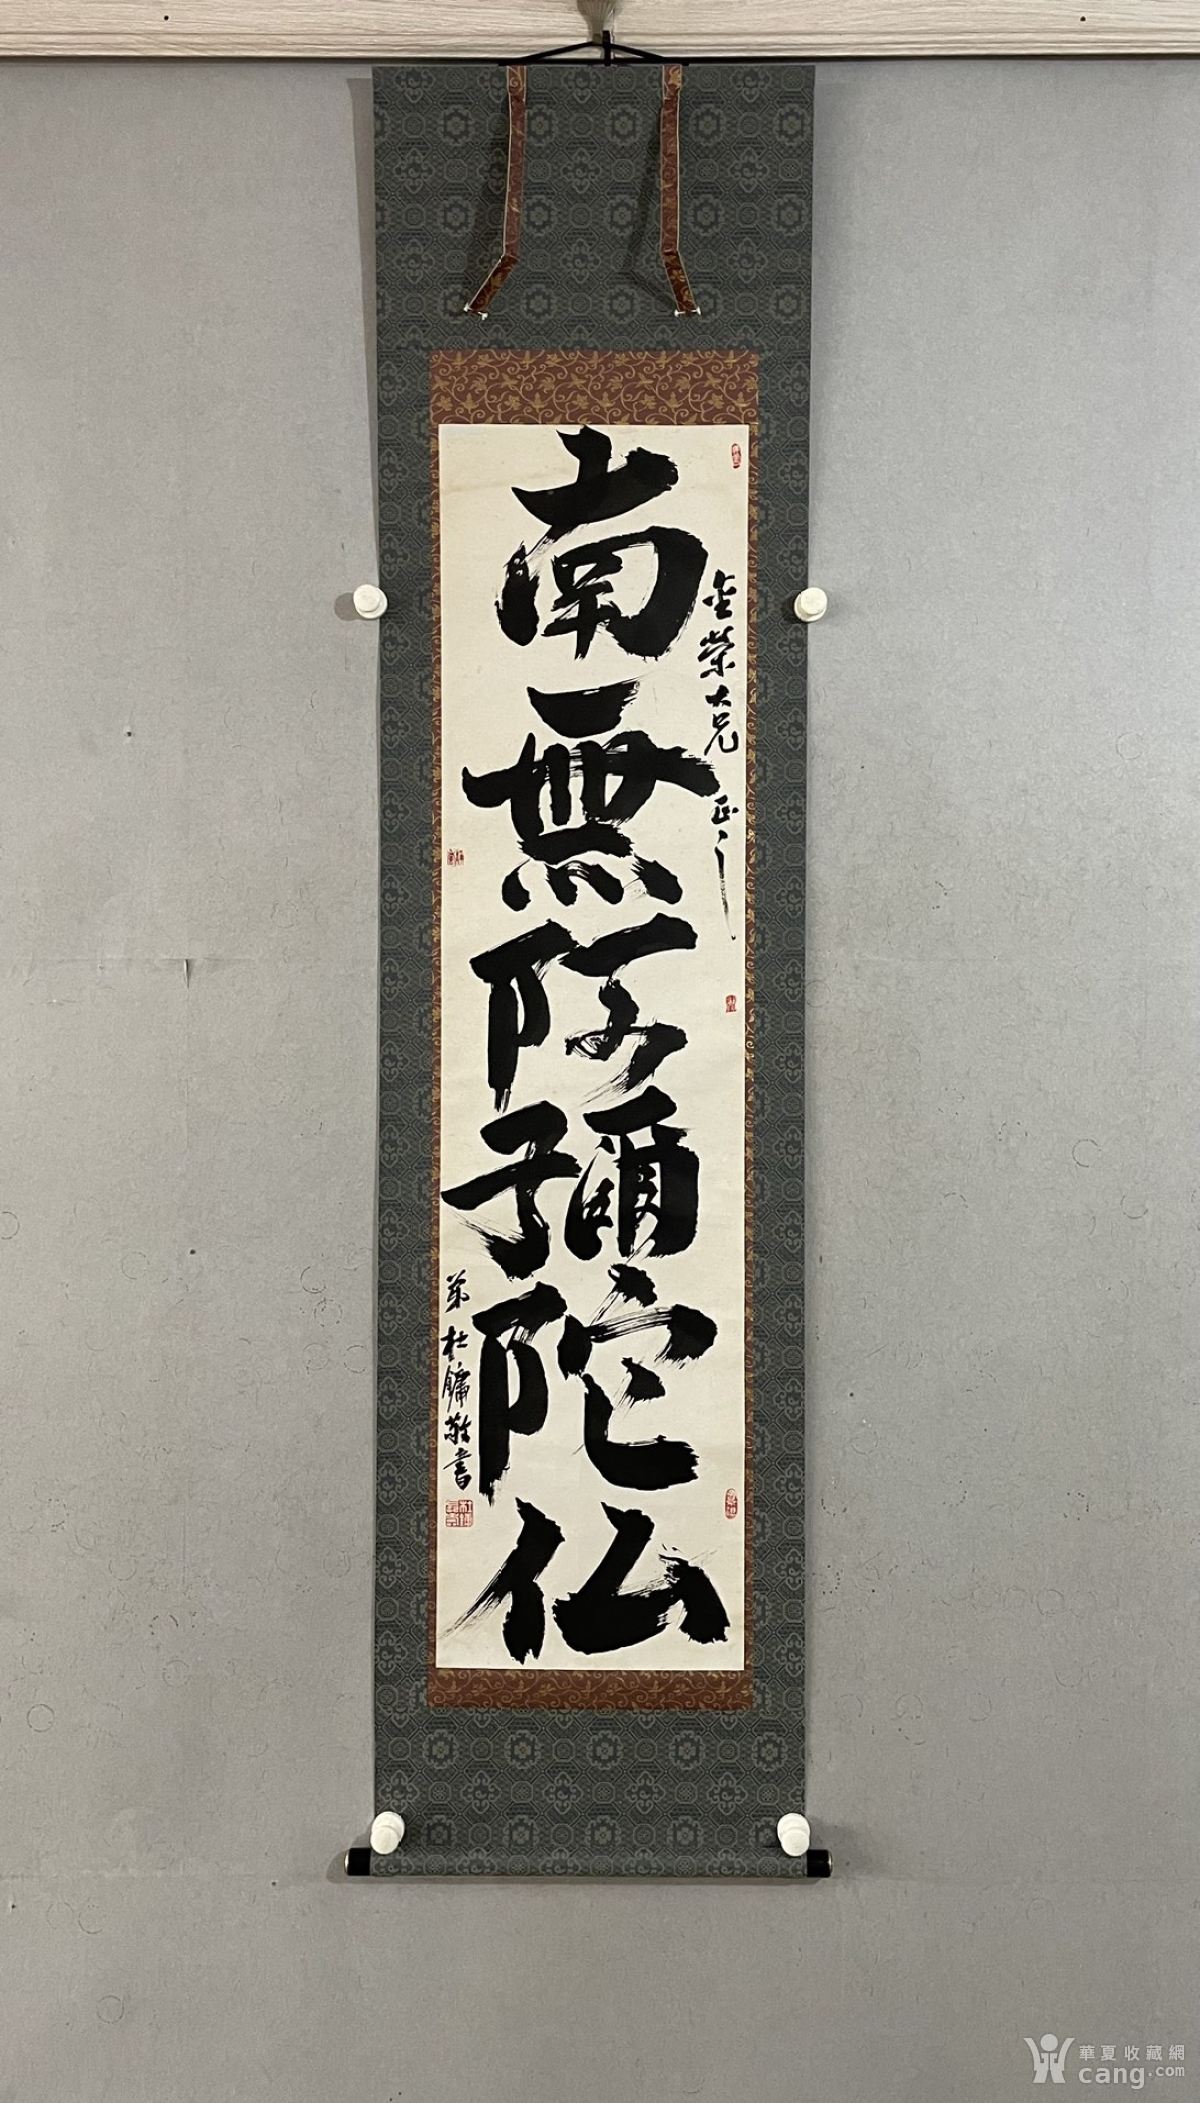 金榮大兄 正之
南無阿彌陀仏
弟杜鏞敬書
華夏收藏網
cang.com